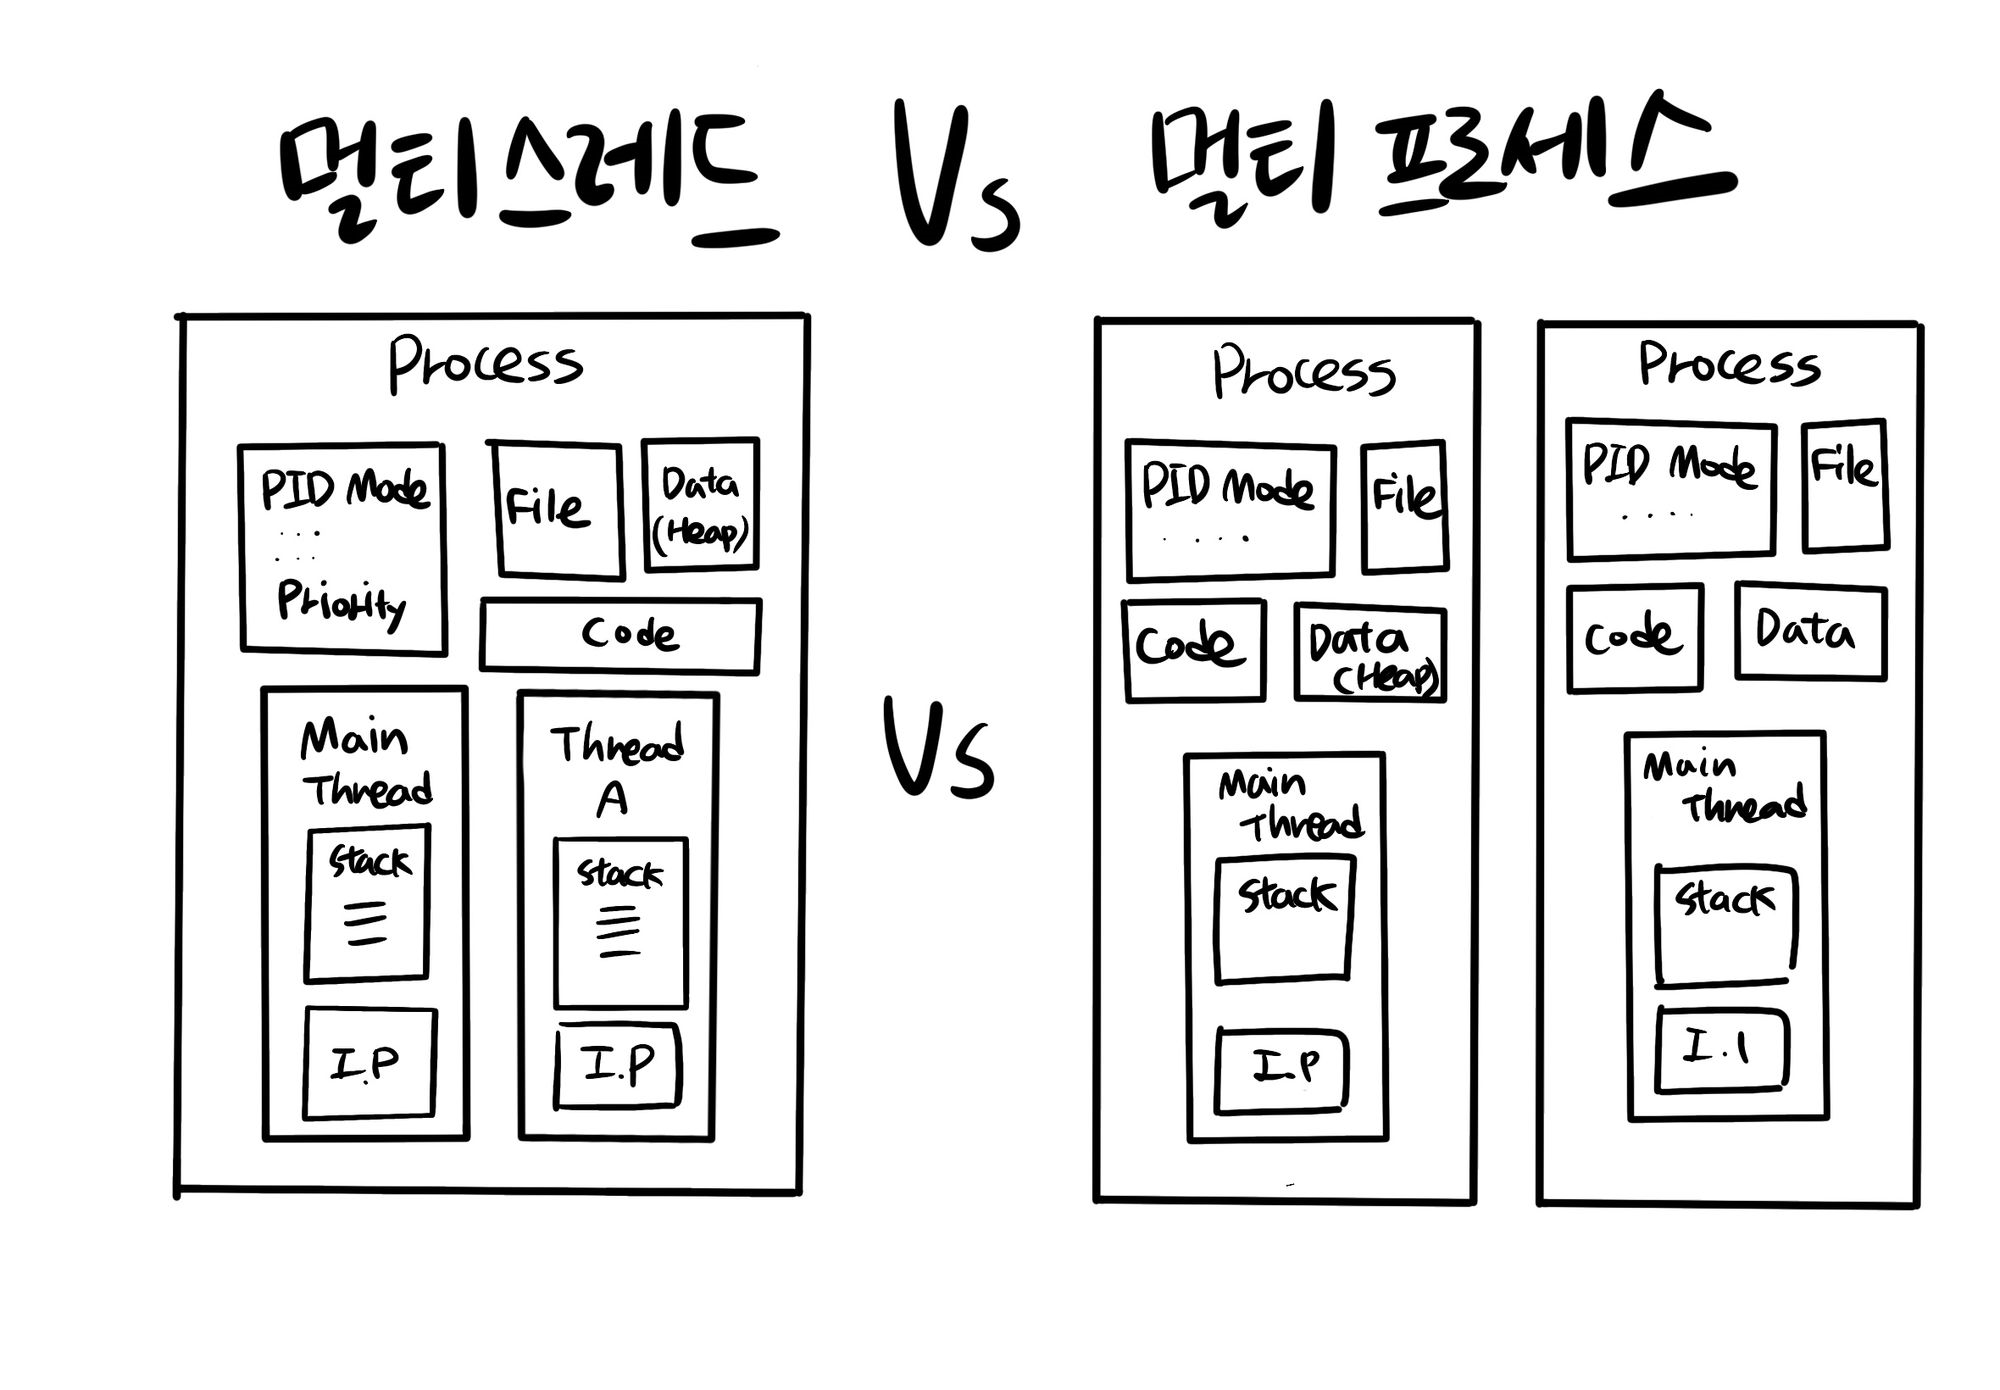 멀티스레드 Vs 멀티 프로세스
Process
PID Mode
...
...
Priority
File
Data
(Heap)
Code
Main
Thread
Stack
I.P
Thread
A
Stack
I.P
Vs
Process
PID Mode
....
File
Code
Data
(Heap)
Main
Thread
Stack
I.P
Process
PID Mode
....
File
Code
Data
Main
Thread
Stack
I.I